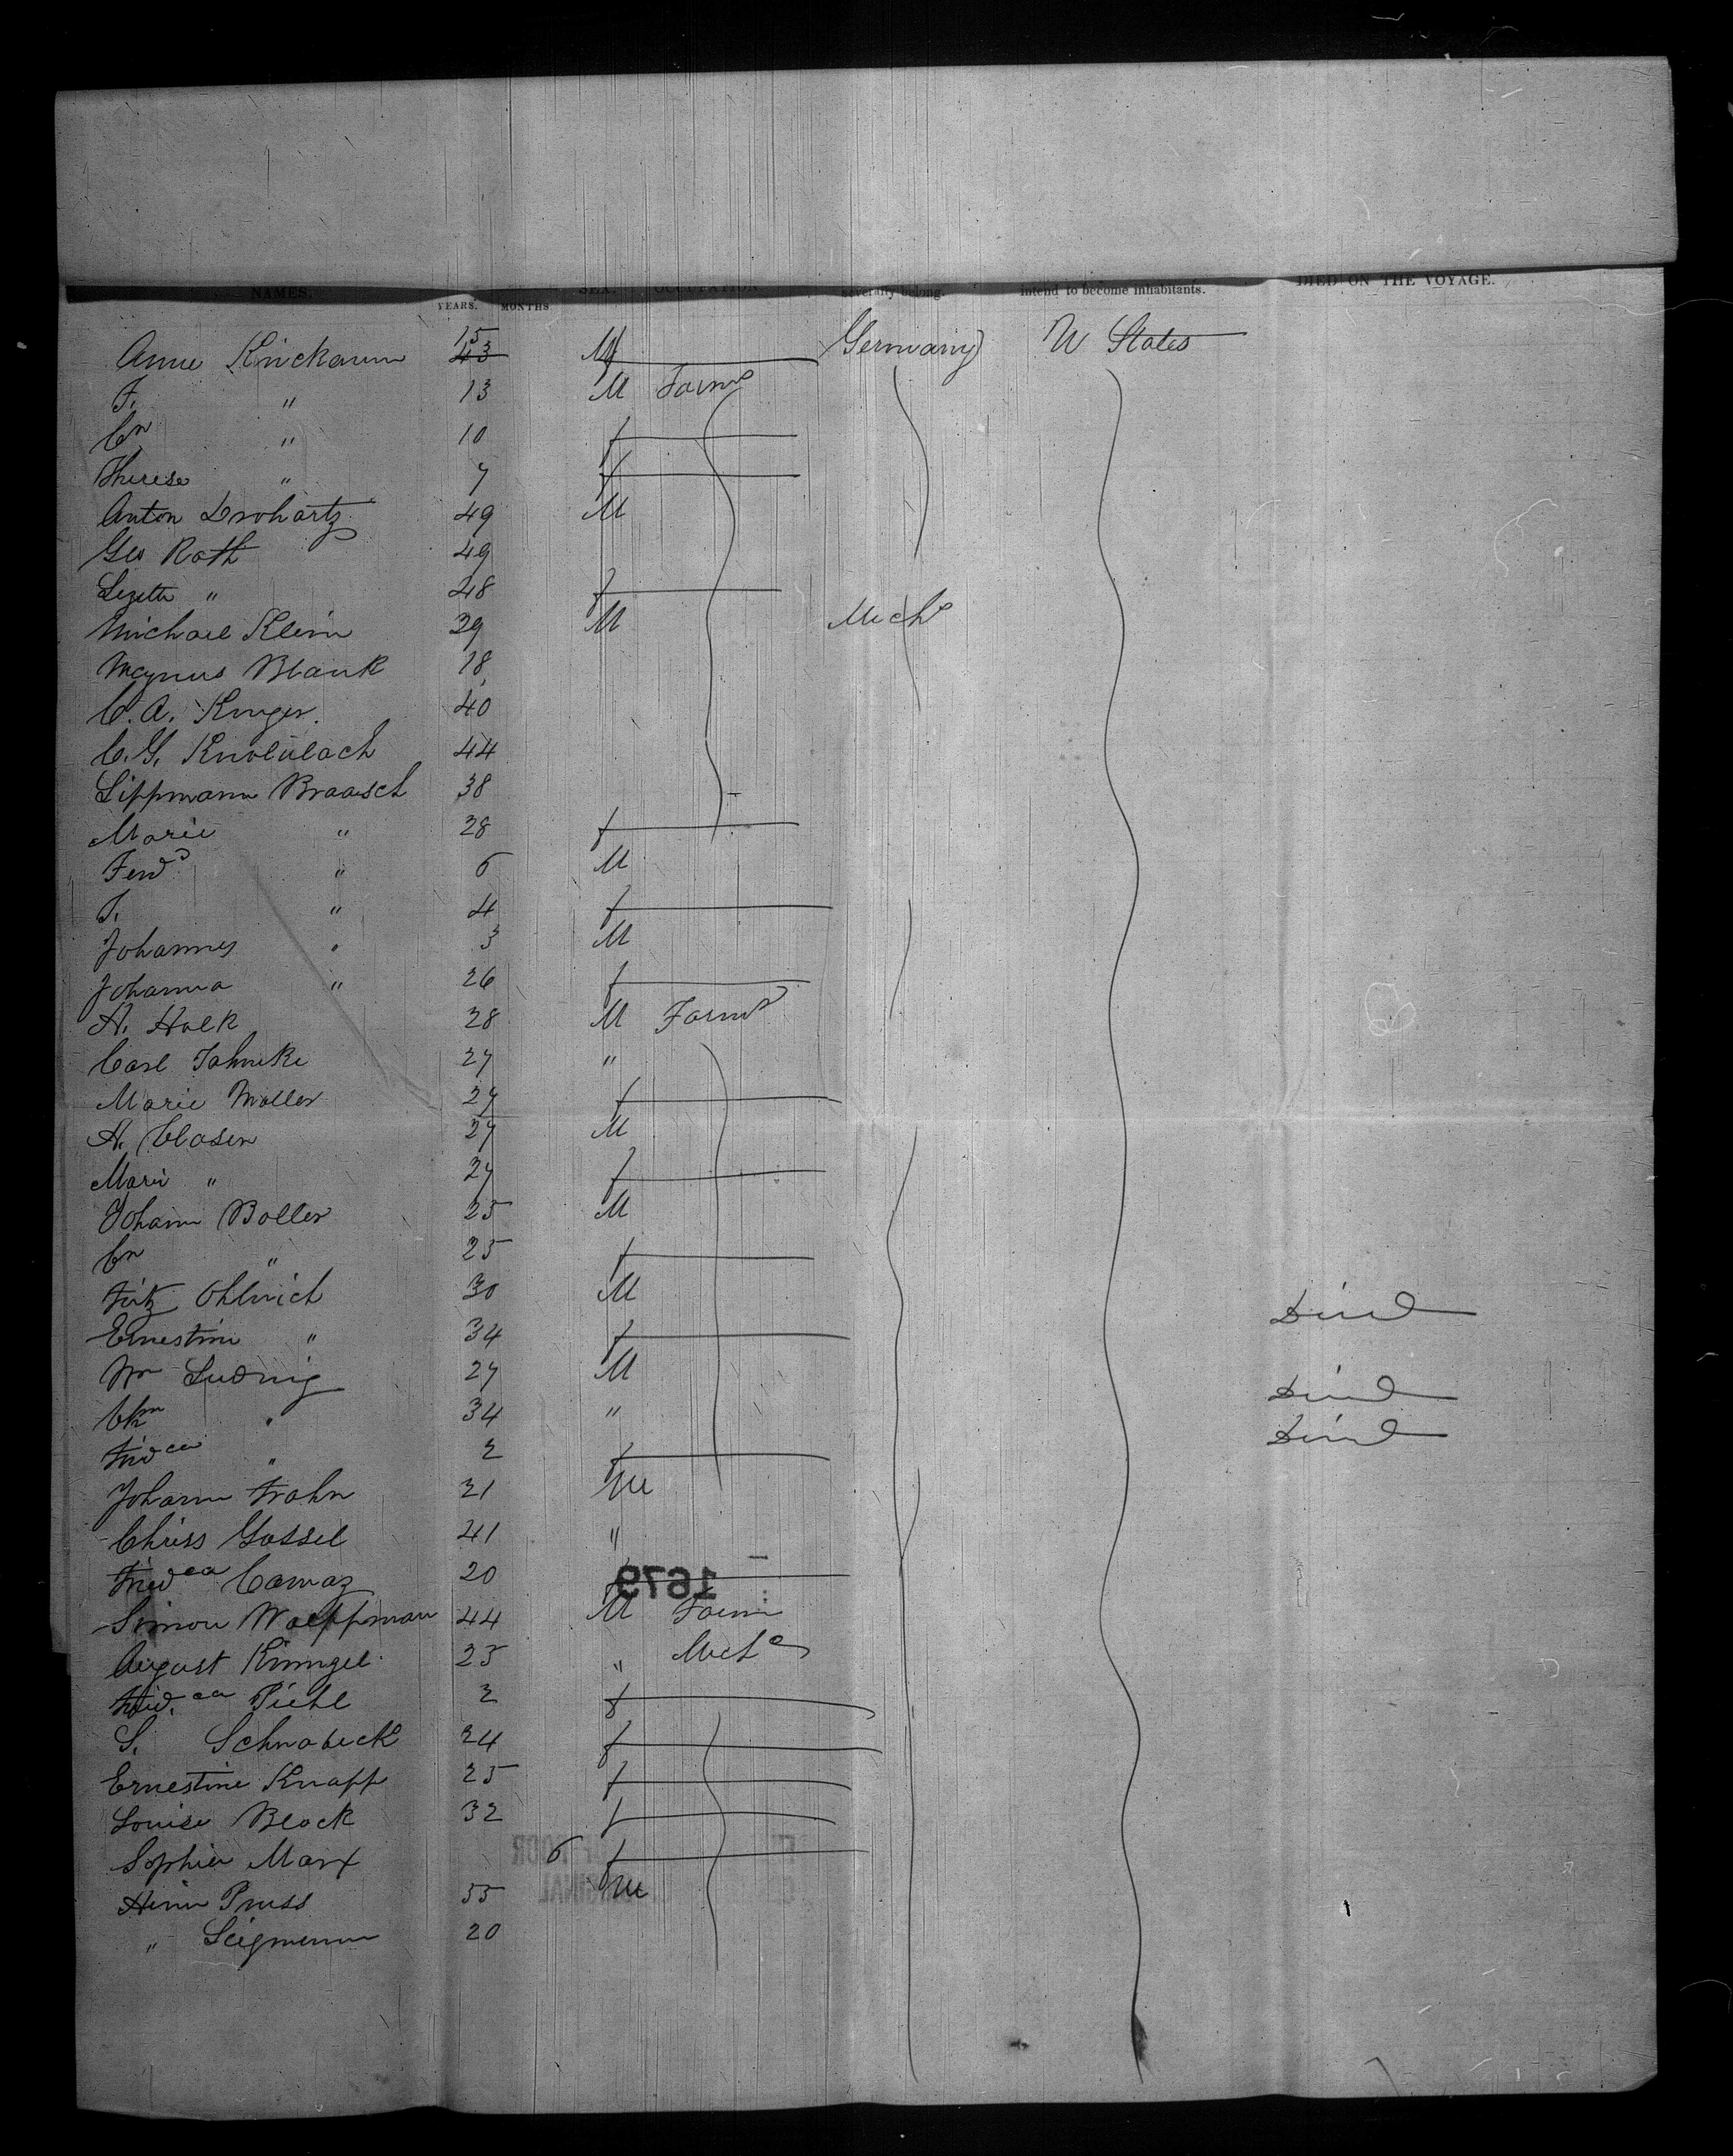 NAMES. YEARS. MONTHS SEX. OCCUPATION severally belong. intend to become inhabitants. DIED ON THE VOYAGE.
Anne 15 43 Germany U States
F. " 13 M Farmr
Cn " 10 f
Therese " 7 f
Anton Drohartz 49 M
Geo Roth 49
Lizette " 48 f
Michael Klein 29 M Mech
Magnus Blank 18
C. A. Kruger. 40
C. G. 44
Lippmann Braasch 38
Marie " 28 f
Ferdd " 6 M
T. " 4 f
Johannes " 3 M
Johanna " 26 f
A. Holk 28 M Farmr
Carl Jahneke 27 "
Marie Moller 27 f
H. Clasen 27 M
Marie " 27 f
Johann Boller 25 M
Cn " 25 f
Fritz Ohlrich 30 M Died
Ernestine " 34 f
Wm Ludwig 27 M Died
" 34 " Died
Fridca " 2 f
Johann Frahn 21 M
Chriss Gossel 41 "
Friedca 20 f
1679
Simon 44 M Farm
August 25 " Mech
Frid.ca Piehl 2 f
S. Schnabeck 24 f
Ernestine Knapp 25 f
Louise Block 32 f
Sophie Marx 6 f
Henr Pruss 55 M
" 20